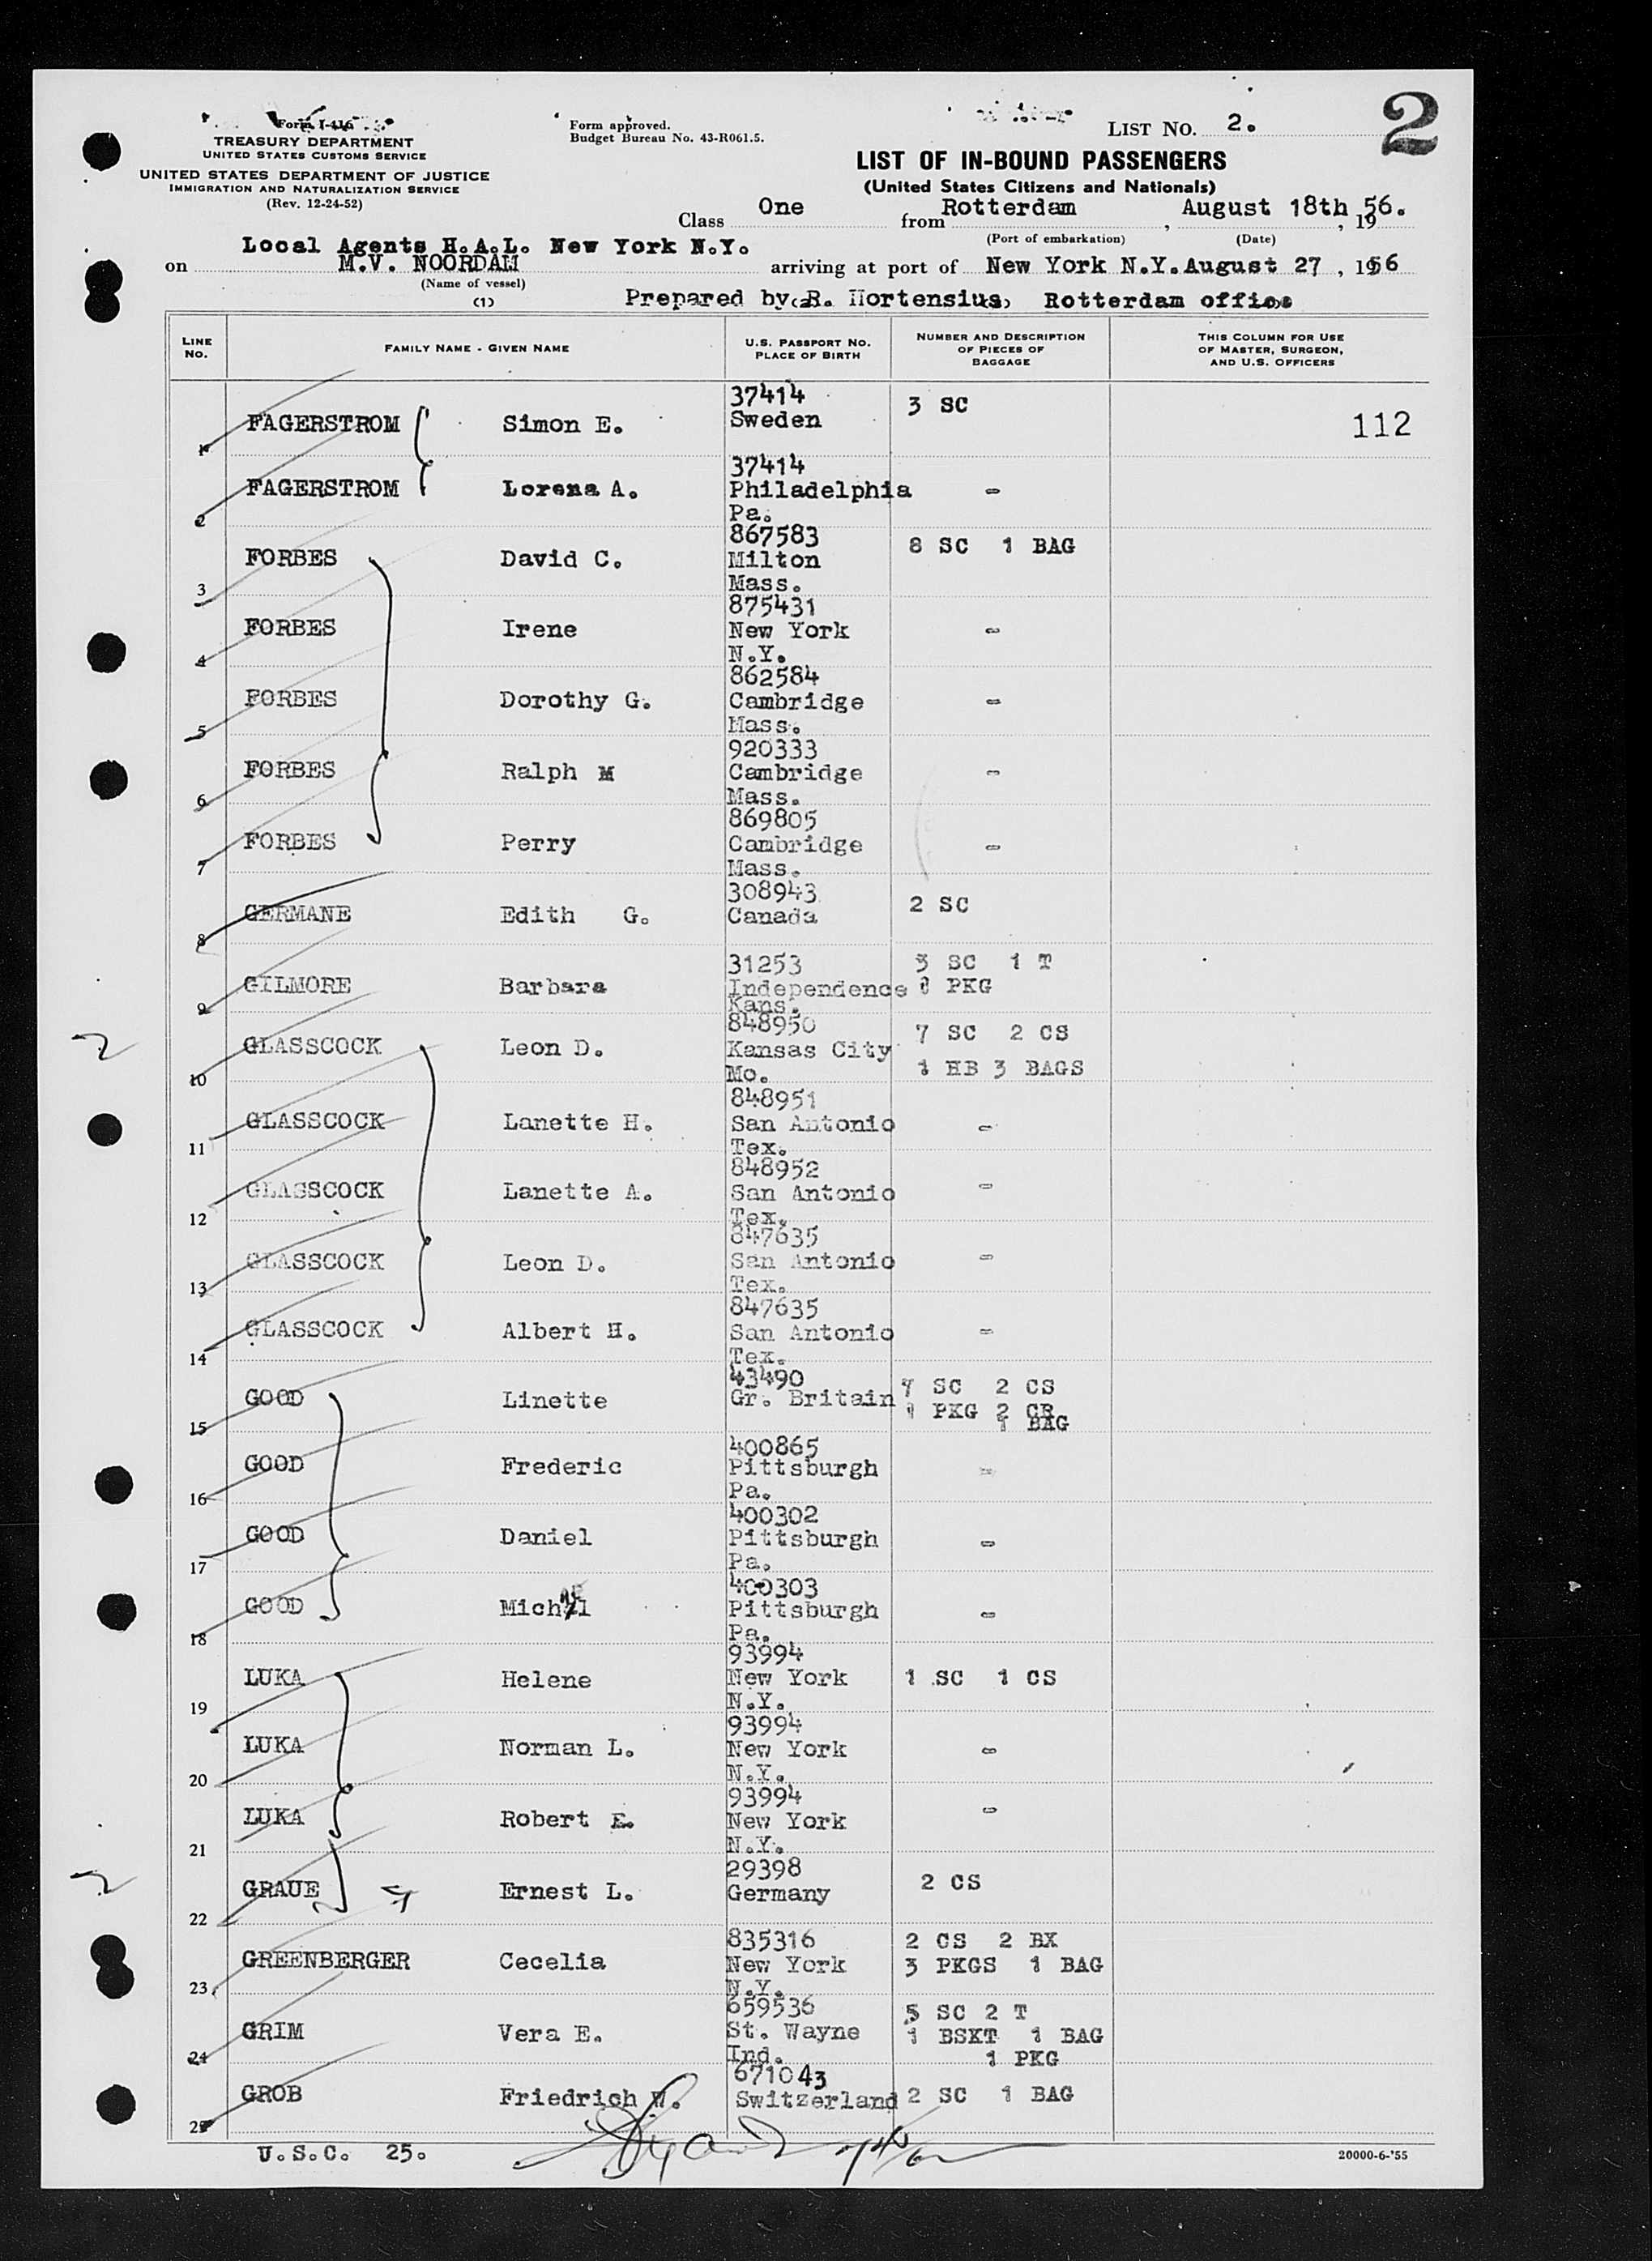 Form I-416
TREASURY DEPARTMENT
UNITED STATES CUSTOMS SERVICE
UNITED STATES DEPARTMENT OF JUSTICE
IMMIGRATION AND NATURALIZATION SERVICE
(Rev. 12-24-52)
Form approved.
Budget Bureau No. 43-R061.5.
LIST NO. 2.
2
LIST OF IN-BOUND PASSENGERS
(United States Citizens and Nationals)
Class One from Rotterdam, August 18th, 1956.
(Port of embarkation) (Date)
Local Agents H.A.L. New York N.Y.
on M.V. NOORDAM arriving at port of New York N.Y. August 27, 1956
(Name of vessel)
(1) Prepared by R. Hortensius Rotterdam office
LINE NO. FAMILY NAME - GIVEN NAME U.S. PASSPORT NO. PLACE OF BIRTH NUMBER AND DESCRIPTION OF PIECES OF BAGGAGE THIS COLUMN FOR USE OF MASTER, SURGEON, AND U.S. OFFICERS
1 FAGERSTROM Simon E. 37414 Sweden 3 SC 112
2 FAGERSTROM Lorena A. 37414 Philadelphia Pa. -
3 FORBES David C. 867583 Milton Mass. 8 SC 1 BAG
4 FORBES Irene 875431 New York N.Y. -
5 FORBES Dorothy G. 862584 Cambridge Mass. -
6 FORBES Ralph M 920333 Cambridge Mass. -
7 FORBES Perry 869805 Cambridge Mass. -
8 GERMANE Edith G. 308943 Canada 2 SC
9 GILMORE Barbara 31253 Independence Kans. 3 SC 1 T PKG
2
10 GLASSCOCK Leon D. 848950 Kansas City Mo. 7 SC 2 CS 1 HB 3 BAGS
11 GLASSCOCK Lanette H. 848951 San Antonio Tex. -
12 GLASSCOCK Lanette A. 848952 San Antonio Tex. -
13 GLASSCOCK Leon D. 847635 San Antonio Tex. -
14 GLASSCOCK Albert H. 847635 San Antonio Tex. -
15 GOOD Linette 43490 Gr. Britain 7 SC 2 CS 1 PKG 2 CR 1 BAG
16 GOOD Frederic 400865 Pittsburgh Pa. -
17 GOOD Daniel 400302 Pittsburgh Pa. -
18 GOOD 400303 Pittsburgh Pa. -
19 LUKA Helene 93994 New York N.Y. 1 SC 1 CS
20 LUKA Norman L. 93994 New York N.Y. -
21 LUKA Robert E. 93994 New York N.Y. -
2
22 GRAUE Ernest L. 29398 Germany 2 CS
23 GREENBERGER Cecelia 835316 New York N.Y. 2 CS 2 BX 3 PKGS 1 BAG
24 GRIM Vera E. 659536 St. Wayne Ind. 5 SC 2 T 1 BSKT 1 BAG 1 PKG
25 GROB Friedrich W. 671043 Switzerland 2 SC 1 BAG
U.S.C. 25.
20000-6-'55